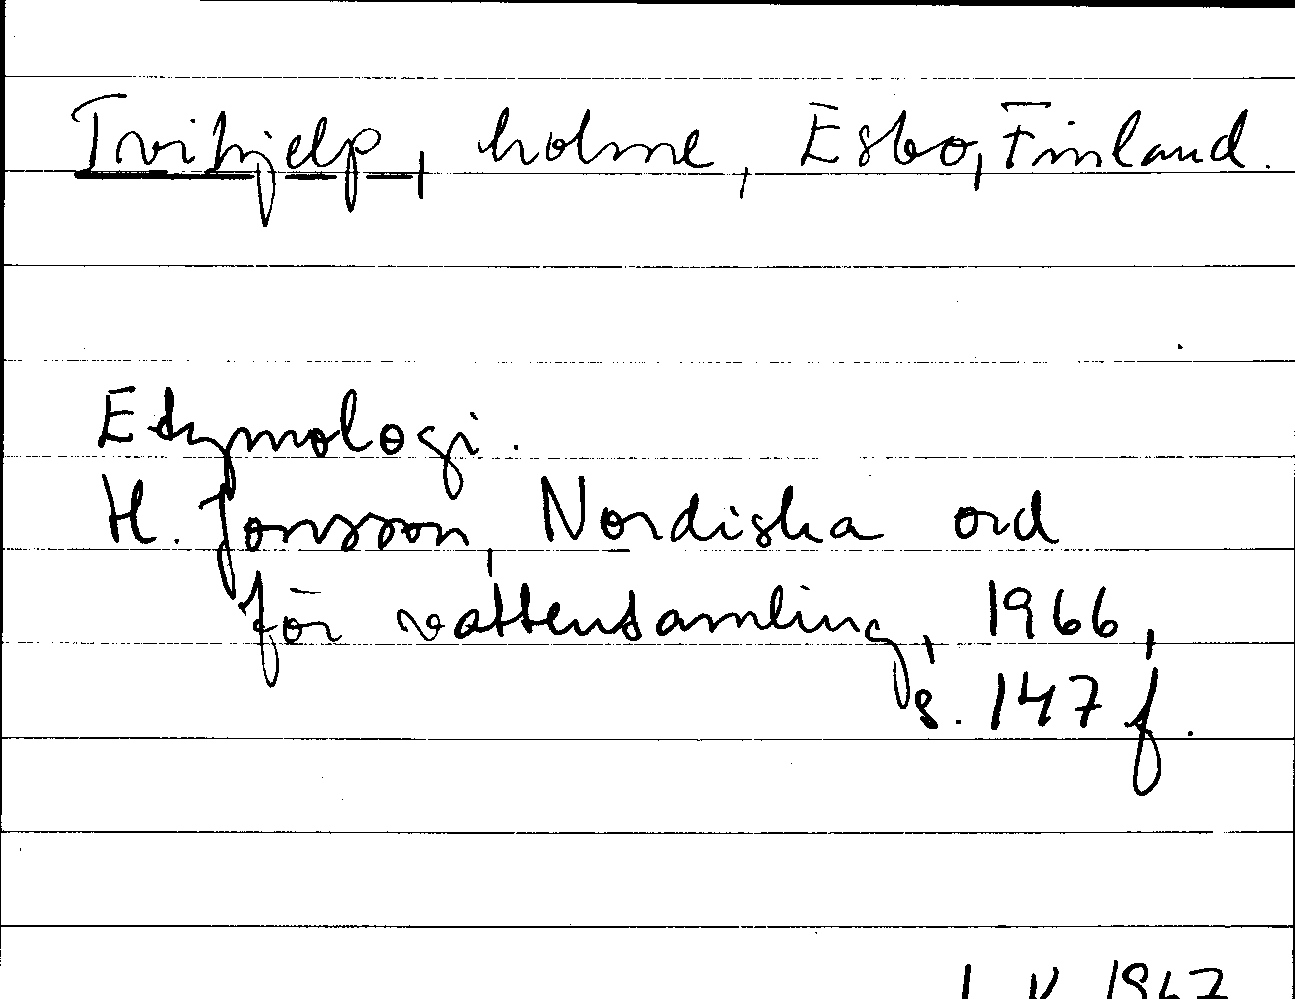 Tvihjelp, holme, Esbo, Finland.
Etymologi.
H. Jonsson, Nordiska ord
för vattensamling, 1966,
s. 147 f.
1967